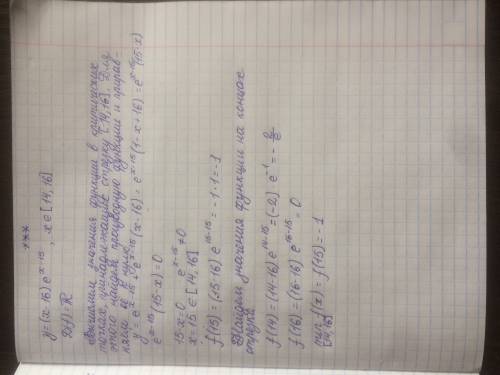 ***
y=(x-16)e^{x-15}, x∈[14,16]
D(f)=R
Вычислим значения функции в критических
точках, принадлежащие отрезку [14,16]. Для
этого найдем производную функции и прирав-
няем к нулю.
y'=e^{x-15}+e^{x-15}(x-16)=e^{x-15}(1-x+16)=e^{x-15}(15-x)
e^{x-15}(15-x)=0
15-x=0, e^{x-15}≠0
x=15∈[14,16]
f(15)=(15-16)e^{15-15}=-1·1=-1
Найдем значения функции на концах
отрезка
f(14)=(14-16)e^{14-15}=(-2)e^{-1}=-2/e
f(16)=(16-16)e^{16-15}=0
f(x)=f(15)=-1
[14,16]